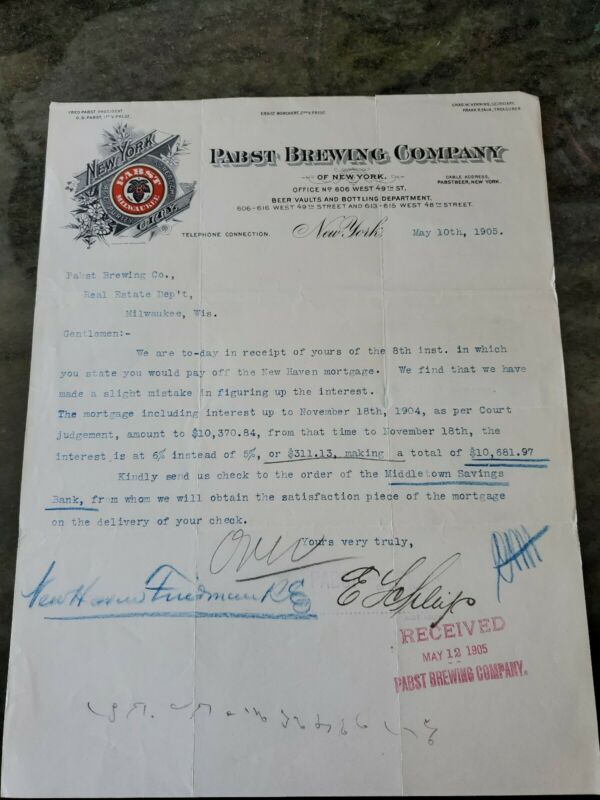 FRED PABST, PRESIDENT
G. G. PABST, 1ST V. PREST.
ERNST BORCHERT, 2ND V. PREST.
CHAS. W. HENNING, SECRETARY.
TREASURER.
NEW YORK
PABST
MILWAUKEE
PABST BREWING COMPANY
OF NEW YORK.
OFFICE NO 606 WEST 49TH ST.
CABLE ADDRESS,
PABSTBEER, NEW YORK.
BEER VAULTS AND BOTTLING DEPARTMENT,
606-616 WEST 49TH STREET AND 613-615 WEST 48TH STREET.
TELEPHONE CONNECTION.
New York, May 10th, 1905.
Pabst Brewing Co.,
Real Estate Dep't,
Milwaukee, Wis.
Gentlemen:-
We are to-day in receipt of yours of the 8th inst. in which
you state you would pay off the New Haven mortgage. We find that we have
made a slight mistake in figuring up the interest.
The mortgage including interest up to November 18th, 1904, as per Court
judgement, amount to $10,370.84, from that time to November 18th, the
interest is at 6% instead of 5%, or $311.13, making a total of $10,681.97
Kindly send us check to the order of the Middletown Savings
Bank, from whom we will obtain the satisfaction piece of the mortgage
on the delivery of your check.
Yours very truly,
Over
New Haven Friedman R E
RECEIVED
MAY 12 1905
PABST BREWING COMPANY.